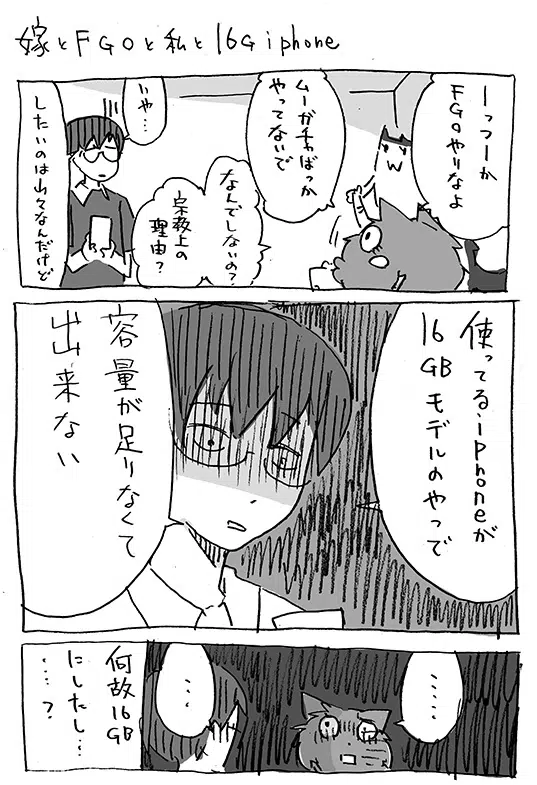 嫁とFGOと私と16Giphone
いーっつーか
FGOやりなよ
ムーがチャばっか
やってないで
なんでしないの?
宗教上の
理由?
いや…
したいのは山々なんだけど
使ってるiphoneが
16
GBモデルのやつで
容量が足りなくて
出来ない
…‥
…
何故16
GB
にしたし…
…?